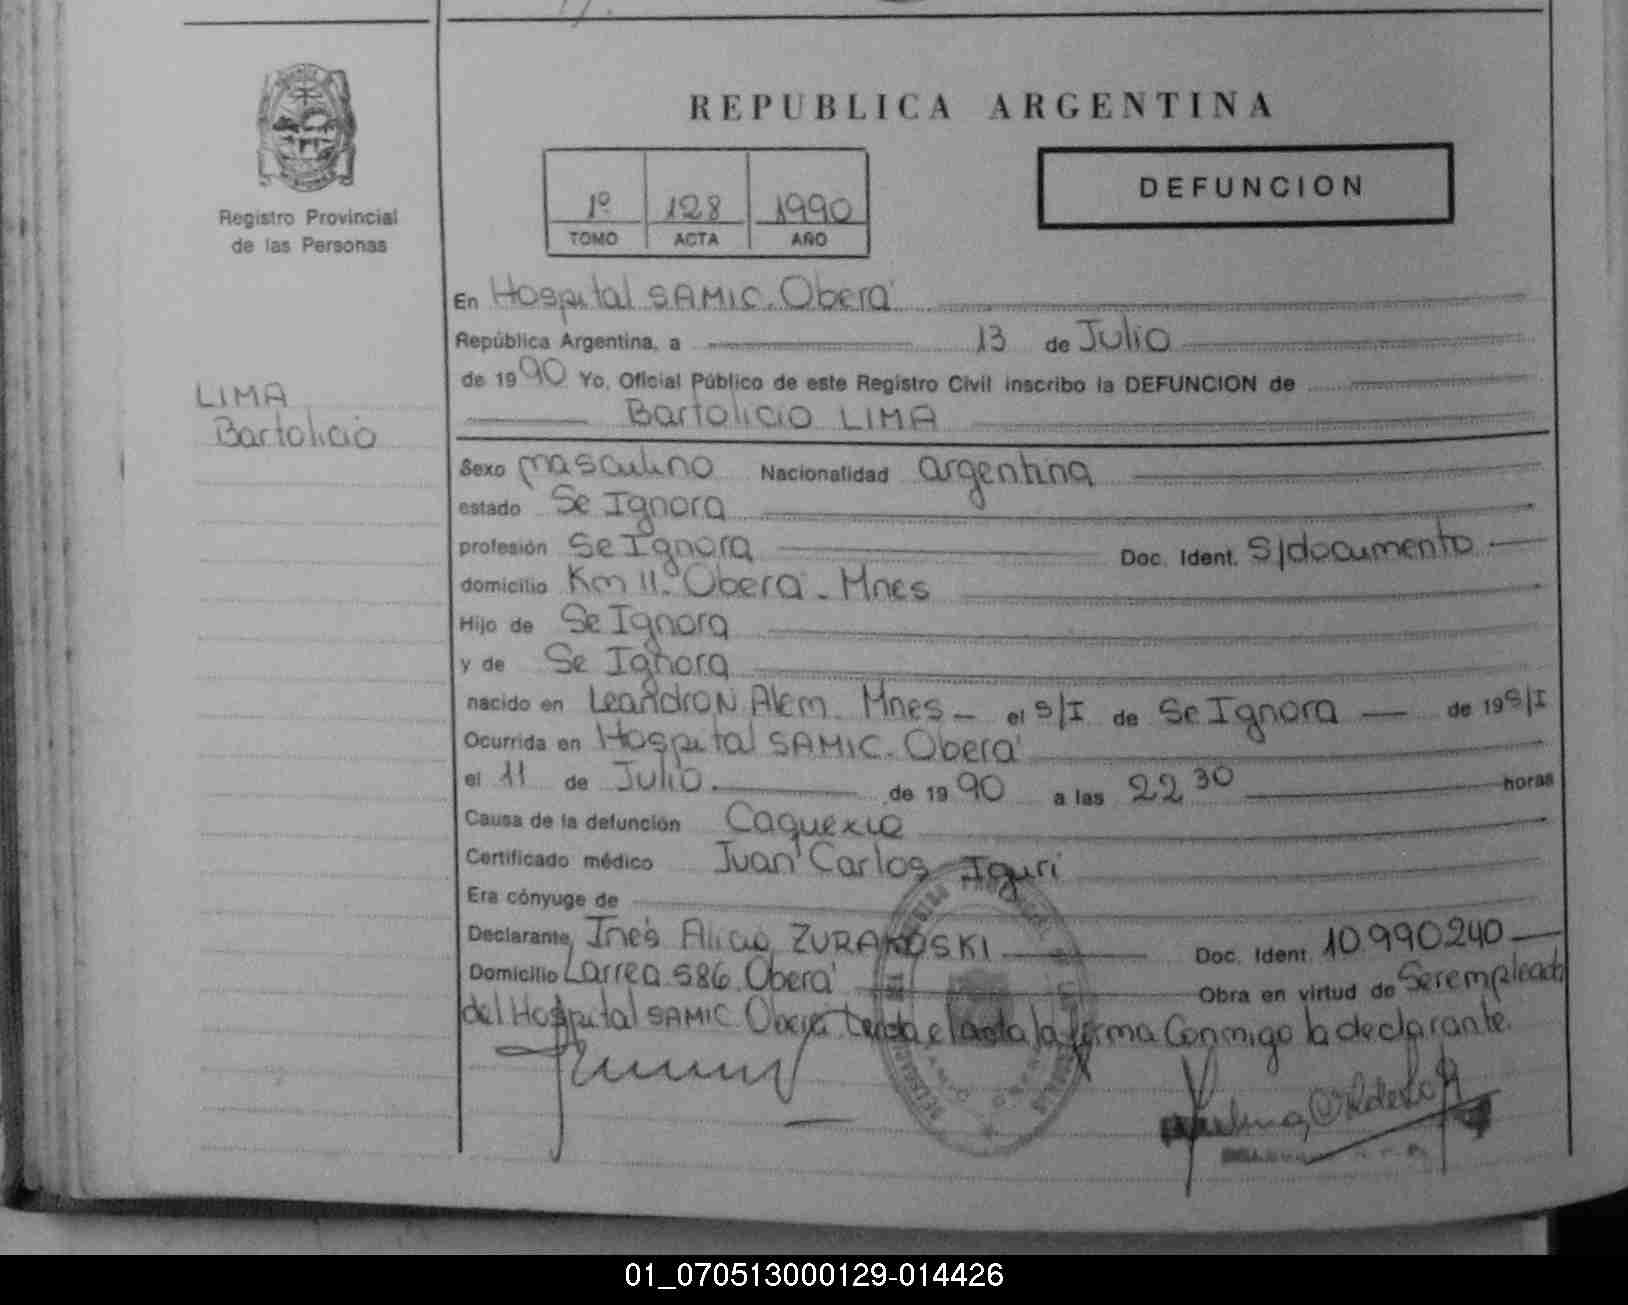 REPUBLICA ARGENTINA
Registro Provincial
de las Personas
1º 128 1990
TOMO ACTA AÑO
DEFUNCION
LIMA
Bartolicio
En Hospital SAMIC. Oberá
República Argentina, a 13 de Julio
de 1990 Yo, Oficial Público de este Registro Civil inscribo la DEFUNCION de
Bartolicio LIMA
Sexo masculino Nacionalidad argentina
estado Se Ignora
profesión Se Ignora Doc. Ident. S/documento
domicilio Km 11. Oberá - Mnes
Hijo de Se Ignora
y de Se Ignora
nacido en Leandro N. Alem. Mnes - el S/I de Se Ignora de 19 S/I
Ocurrida en Hospital SAMIC. Oberá
el 11 de Julio de 1990 a las 22 30 horas
Causa de la defunción Caquexia
Certificado médico Juan Carlos Iguri
Era cónyuge de
Declarante Inés Alicia ZURAKOSKI Doc. Ident. 10.990240
Domicilio Larrea 586. Oberá Obra en virtud de Ser empleada
del Hospital SAMIC. Oberá Leida el acta la firma Conmigo la declarante.
01_070513000129-014426